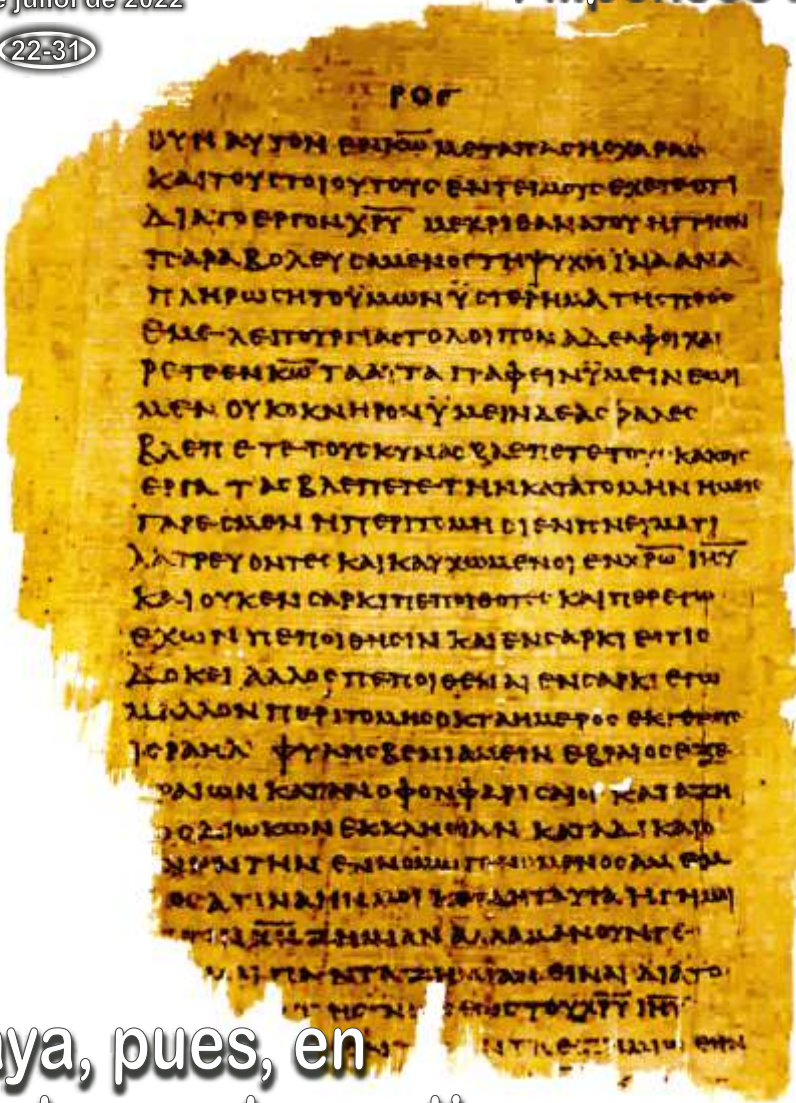 e juliol de 2022
22-31
ΡΟϚ
ΟΥΝ ΑΥΤΟΝ ΕΝ Κ̅Ω̅ ΜΕΤΑ ΠΑϹΗϹ ΧΑΡΑϹ
ΚΑΙ ΤΟΥϹ ΤΟΙΟΥΤΟΥϹ ΕΝΤΕΙΜΟΥϹ ΕΧΕΤΕ ΟΤΙ
ΔΙΑ ΤΟ ΕΡΓΟΝ Χ̅Ρ̅Υ̅ ΜΕΧΡΙ ΘΑΝΑΤΟΥ ΗΓΓΙϹΕΝ
ΠΑΡΑΒΟΛΕΥϹΑΜΕΝΟϹ ΤΗ ΨΥΧΗ ΪΝΑ ΑΝΑ
ΠΛΗΡΩϹΗ ΤΟ ΫΜΩΝ ΫϹΤΕΡΗΜΑ ΤΗϹ ΠΡΟϹ
ΕΜΕ ΛΕΙΤΟΥΡΓΙΑϹ ΤΟ ΛΟΙΠΟΝ ΑΔΕΛΦΟΙ ΧΑΙ
ΡΕΤΕ ΕΝ Κ̅Ω̅ ΤΑ ΑΥΤΑ ΓΡΑΦΕΙΝ ΫΜΕΙΝ ΕΜΟΙ
ΜΕΝ ΟΥΚ ΟΚΝΗΡΟΝ ΫΜΕΙΝ ΔΕ ΑϹΦΑΛΕϹ
ΒΛΕΠΕΤΕ ΤΟΥϹ ΚΥΝΑϹ ΒΛΕΠΕΤΕ ΤΟΥϹ ΚΑΚΟΥϹ
ΕΡΓΑΤΑϹ ΒΛΕΠΕΤΕ ΤΗΝ ΚΑΤΑΤΟΜΗΝ ΗΜΕΙϹ
ΓΑΡ ΕϹΜΕΝ Η ΠΕΡΙΤΟΜΗ ΟΙ ΕΝ ΠΝΕΥΜΑΤΙ
ΛΑΤΡΕΥΟΝΤΕϹ ΚΑΙ ΚΑΥΧΩΜΕΝΟΙ ΕΝ Χ̅Ρ̅Ω̅ Ι̅Η̅Υ̅
ΚΑΙ ΟΥΚ ΕΝ ϹΑΡΚΙ ΠΕΠΟΙΘΟΤΕϹ ΚΑΙΠΕΡ ΕΓΩ
ΕΧΩΝ ΠΕΠΟΙΘΗϹΙΝ ΚΑΙ ΕΝ ϹΑΡΚΙ ΕΙ ΤΙϹ
ΔΟΚΕΙ ΑΛΛΟϹ ΠΕΠΟΙΘΕΝΑΙ ΕΝ ϹΑΡΚΙ ΕΓΩ
ΜΑΛΛΟΝ ΠΕΡΙΤΟΜΗ ΟΚΤΑΗΜΕΡΟϹ ΕΚ ΓΕΝΟΥϹ
ΙϹΡΑΗΛ ΦΥΛΗϹ ΒΕΝΙΑΜΕΙΝ ΕΒΡΑΙΟϹ ΕΞ Ε
ΡΑΙΩΝ ΚΑΤΑ ΝΟΜΟΝ ΦΑΡΙϹΑΙΟϹ ΚΑΤΑ ΖΗ
ΟϹ ΔΙΩΚΩΝ ΕΚΚΛΗϹΙΑΝ ΚΑΤΑ ΔΙΚΑΙΟ
ΤΗΝ ΕΝ ΝΟΜΩ ΓΕΝΟΜΕΝΟϹ ΑΜΕΜ
ΑΤΙΝΑ ΗΝ ΜΟΙ ΚΕΡΔΗ ΤΑΥΤΑ ΗΓΗΜΑΙ
ΖΗΜΙΑΝ ΑΛΛΑ ΜΕΝΟΥΝΓΕ
ΠΑΝΤΑ ΖΗΜΙΑΝ ΕΙΝΑΙ ΔΙΑ ΤΟ
ΤΟΥ Χ̅Ρ̅Υ̅ Ι̅Η̅Υ̅
aya, pues, en